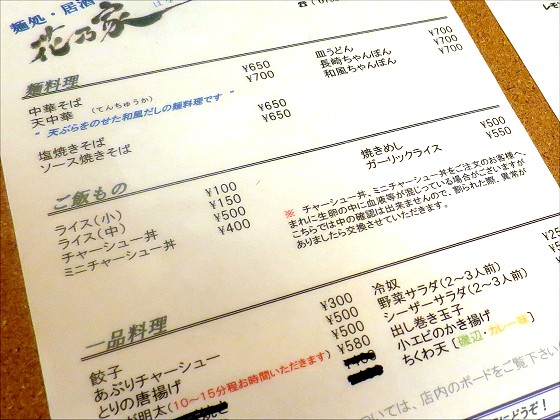 麺処・居酒
花乃家
麺料理
中華そば ¥650
天中華 (てんちゅうか) ¥700
" 天ぷらをのせた和風だしの麺料理です "
塩焼きそば ¥650
ソース焼きそば ¥650
皿うどん ¥700
長崎ちゃんぽん ¥700
和風ちゃんぽん ¥700
ご飯もの
ライス(小) ¥100
ライス(中) ¥150
チャーシュー丼 ¥500
ミニチャーシュー丼 ¥400
焼きめし ¥500
ガーリックライス ¥550
※ チャーシュー丼、ミニチャーシュー丼をご注文のお客様へ、
まれに生卵の中に血液等が混じっている場合がございますが
こちらでは中の確認は出来ませんので、割られた際、異常が
ありましたら交換させていただきます。
一品料理
餃子 ¥300
あぶりチャーシュー ¥500
とりの唐揚げ ¥500
明太(10~15分程お時間いただきます) ¥580
冷奴
野菜サラダ(2~3人前)
シーザーサラダ(2~3人前)
出し巻き玉子
小エビのかき揚げ
ちくわ天 [磯辺・カレー味]
ついては、店内のボードをご覧下さい
にどうぞ!